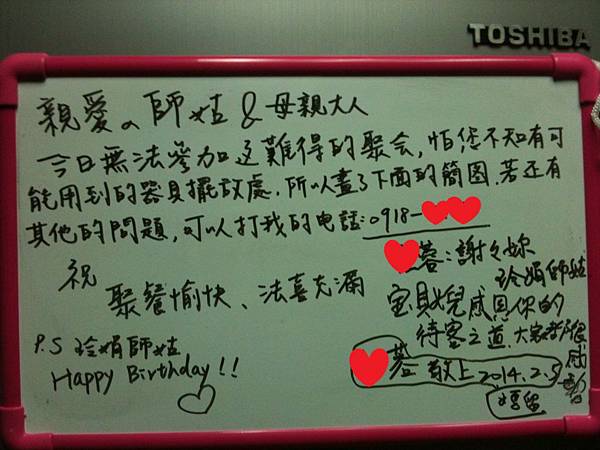 TOSHIBA
親愛の師姑&母親大人
今日無法參加這難得的聚会,怕您不知有可
能用到的器具擺放處,所以畫了下面的簡图.若还有
其他的問題,可以打我的电話:0918-
祝
聚餐愉快、法喜充滿
P.S 玲娟師姑
Happy Birthday!!
蓉:謝々妳
玲娟師姑
宝貝女兒感具你的
待客之道.大家都很感動
蓉 敬上 2014.2.5
媽留